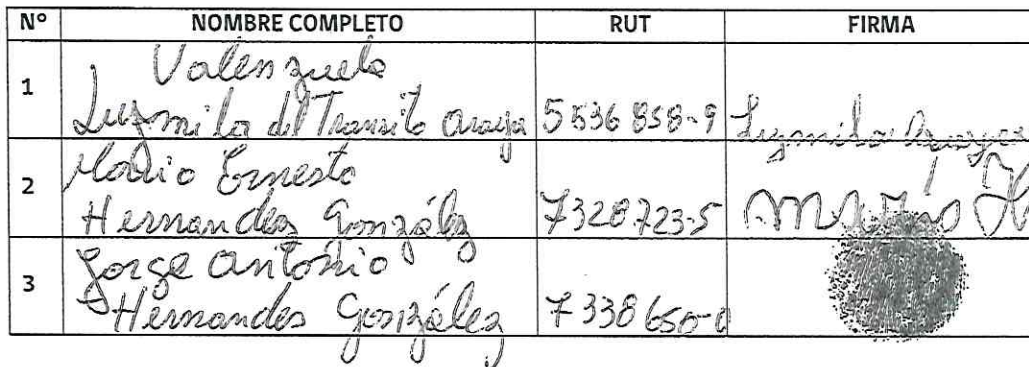 N° NOMBRE COMPLETO RUT FIRMA
Valenzuela
1 Luzmila del Transito Araya 5536858-9 Luzmila Araya
Mario Ernesto
2 Hernandez González 7328723-5
Jorge Antonio
3 Hernandez González 7338650-0